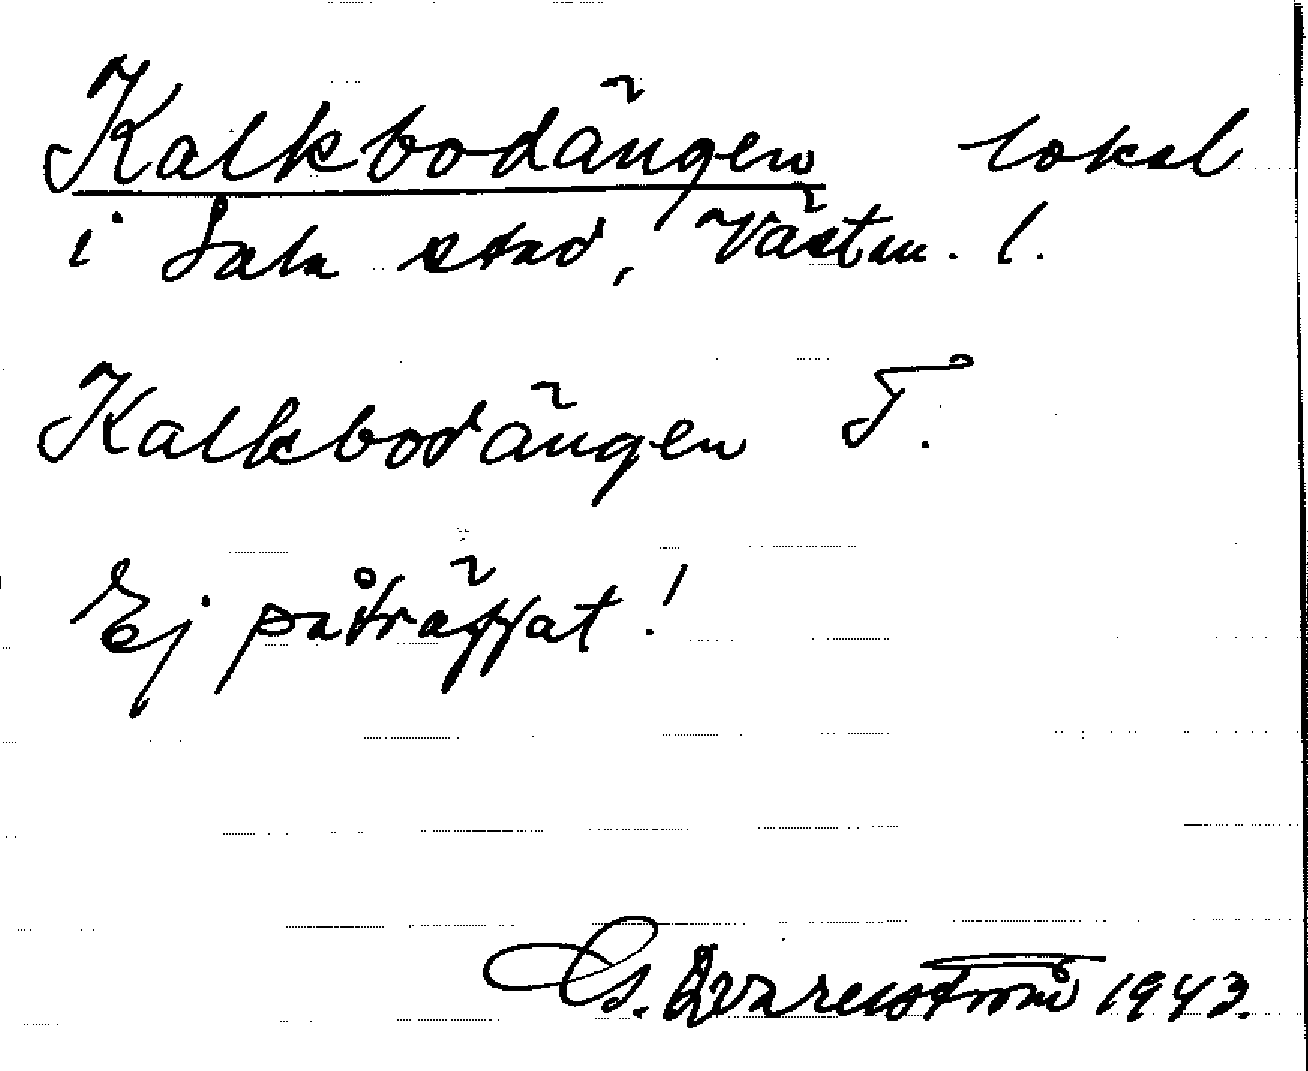 Kalkbodängen lokal
i Sala stad, Västm. l.
Kalkbodängen T.
Ej påträffat!
G. Qvarnström 1943.